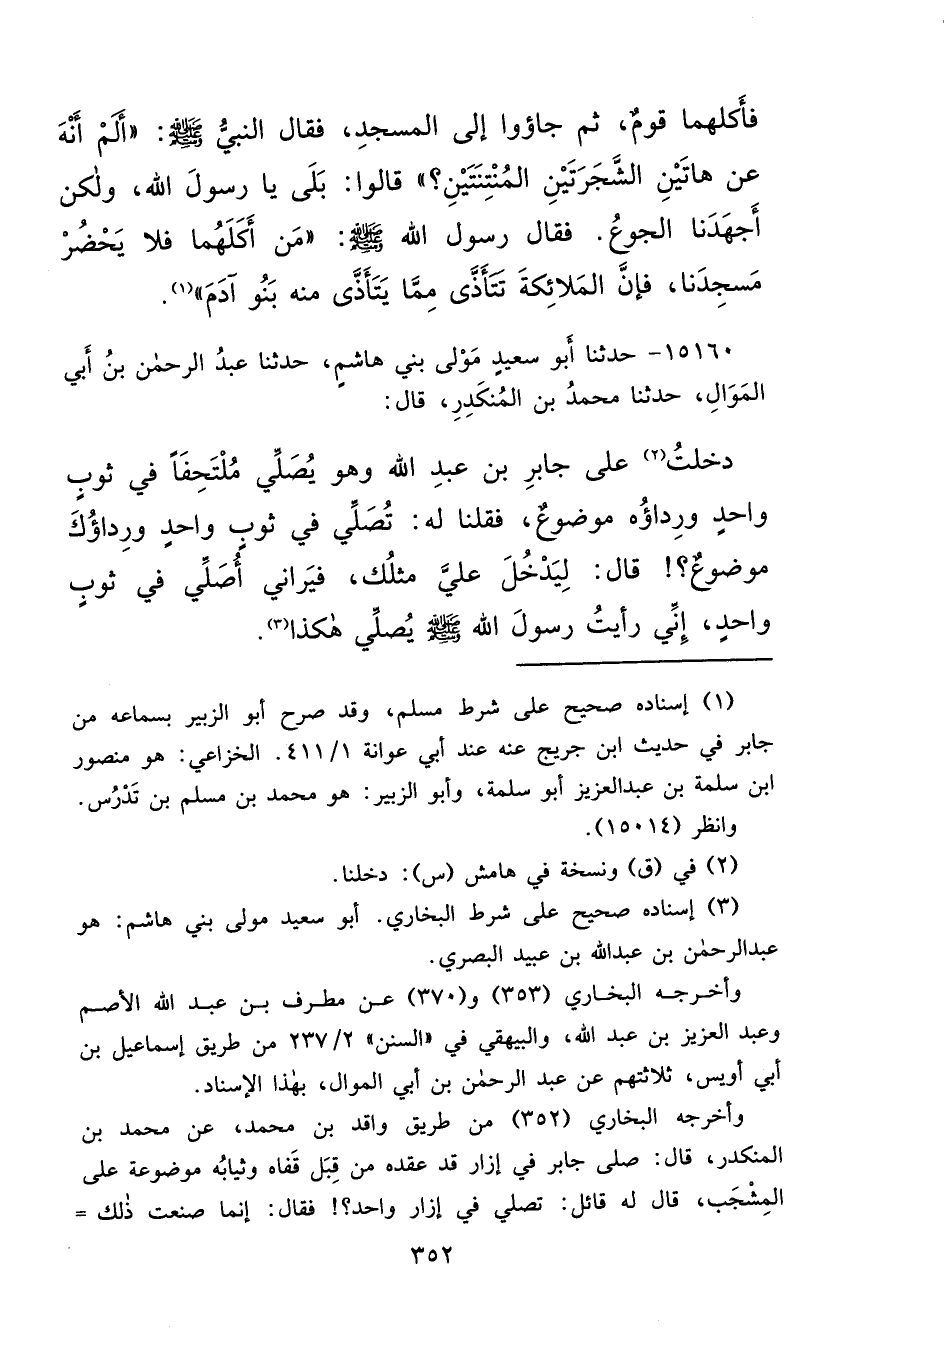 فأَكلهما قومٌ، ثم جاؤوا إلى المسجدِ، فقال النبيُّ ﷺ: «أَلَمْ أَنْهَ
عن هاتَيْنِ الشَّجَرَتَيْنِ المُنْتِنَتَيْنِ؟» قالوا: بَلَى يا رسولَ الله، ولٰكن
أَجهَدَنا الجوعُ. فقال رسول الله ﷺ: «مَن أَكَلَهُما فلا يَحْضُرْ
مَسجِدَنا، فإنَّ المَلائكةَ تَتَأَذَّى مِمَّا يَتَأَذَّى منه بَنُو آدَمَ»(١).
١٥١٦٠- حدثنا أَبو سعيدٍ مَوْلى بني هاشمٍ، حدثنا عبدُ الرحمٰن بنُ أَبي
المَوَالِ، حدثنا محمدُ بن المُنكَدِرِ، قال:
دخلتُ(٢) على جابرِ بن عبدِ الله وهو يُصَلِّي مُلْتَحِفَاً في ثوبٍ
واحدٍ ورِداؤُه موضوعٌ، فقلنا له: تُصَلِّي في ثوبٍ واحدٍ ورِداؤُكَ
موضوعٌ؟! قال: لِيَدْخُلَ عليَّ مثلُك، فيَراني أُصَلِّي في ثوبٍ
واحدٍ، إنِّي رأَيتُ رسولَ الله ﷺ يُصلِّي هٰكذا(٣).
(١) إسناده صحيح على شرط مسلم، وقد صرح أبو الزبير بسماعه من
جابر في حديث ابن جريج عنه عند أبي عوانة ٤١١/١. الخزاعي: هو منصور
ابن سلمة بن عبدالعزيز أبو سلمة، وأبو الزبير: هو محمد بن مسلم بن تَدْرُس.
وانظر (١٥٠١٤).
(٢) في (ق) ونسخة في هامش (س): دخلنا.
(٣) إسناده صحيح على شرط البخاري. أبو سعيد مولى بني هاشم: هو
عبدالرحمٰن بن عبدالله بن عبيد البصري.
وأخرجه البخاري (٣٥٣) و(٣٧٠) عن مطرف بن عبد الله الأصم
وعبد العزيز بن عبد الله، والبيهقي في «السنن» ٢٣٧/٢ من طريق إسماعيل بن
أبي أويس، ثلاثتهم عن عبد الرحمٰن بن أبي الموال، بهٰذا الإسناد.
وأخرجه البخاري (٣٥٢) من طريق واقد بن محمد، عن محمد بن
المنكدر، قال: صلى جابر في إزار قد عقده من قِبَل قَفاه وثيابُه موضوعة على
المِشْجَب، قال له قائل: تصلي في إزار واحد؟! فقال: إنما صنعت ذٰلك =
٣٥٢